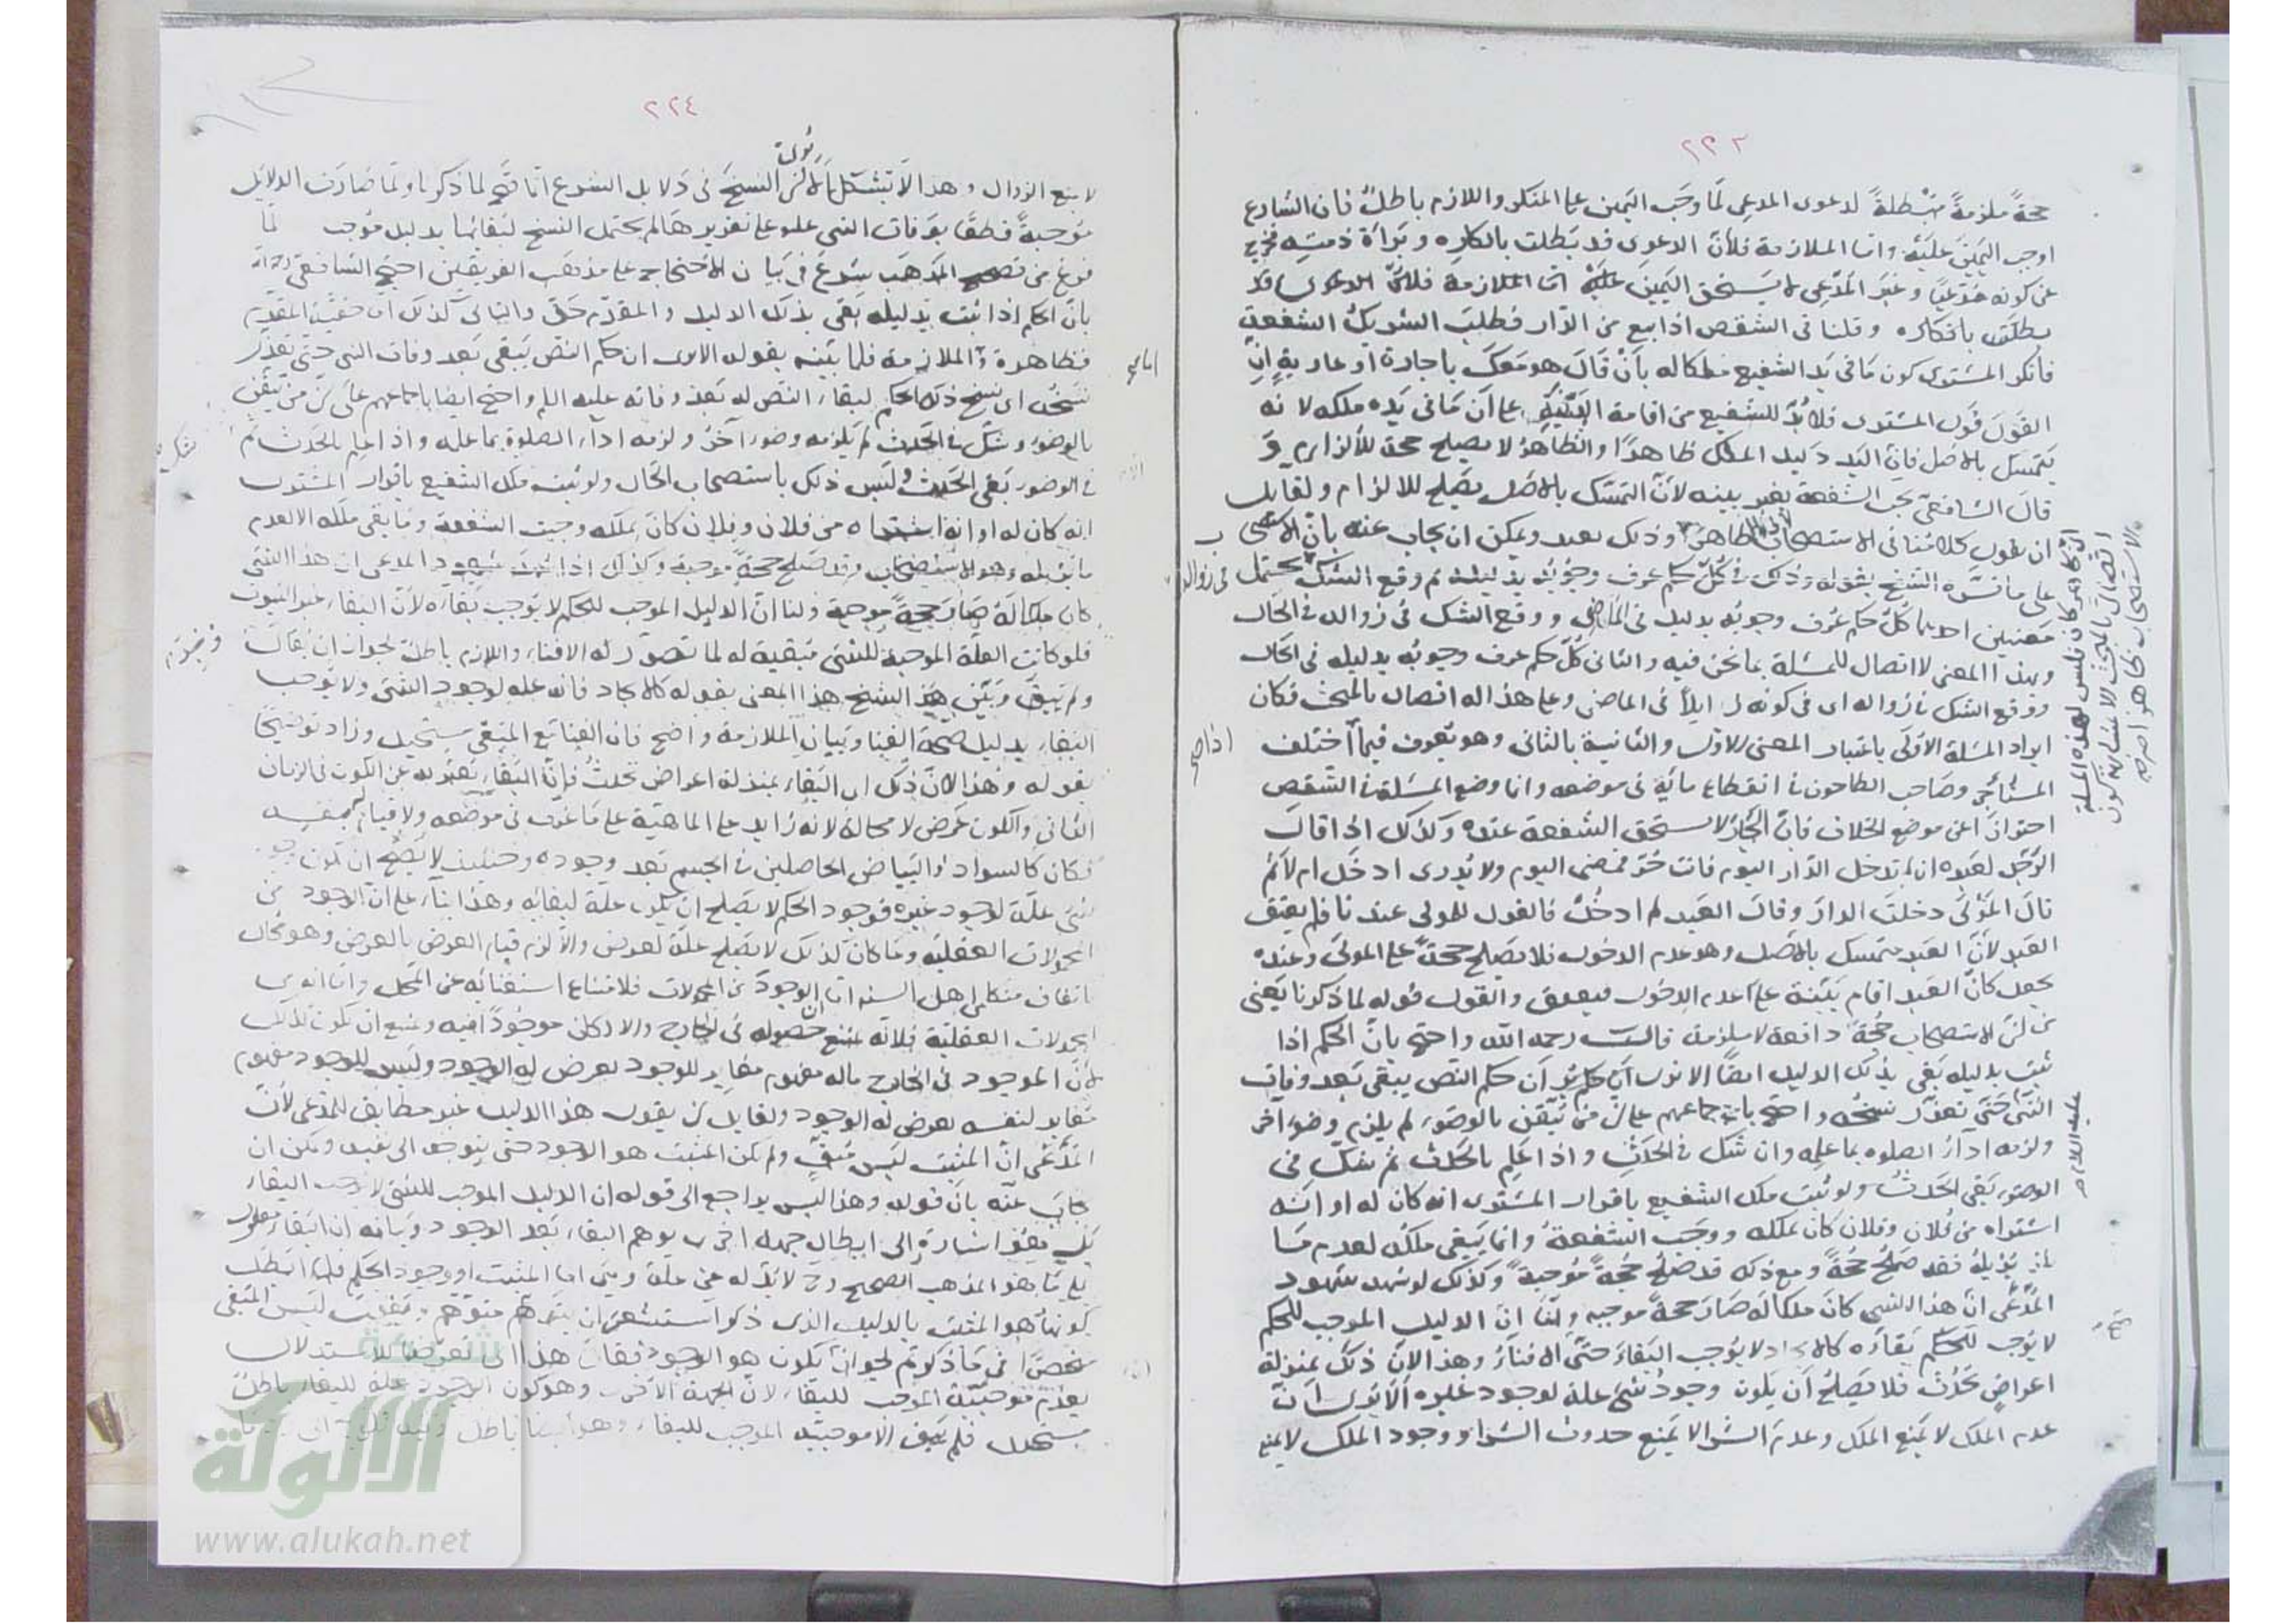 ٢٢٣
حجةً ملزمةً مبطلةً لدعوى المدعى لما وجب اليمين على المنكر واللازم باطل فان الشارع
اوجب اليمين عليه واما الملازمة فلأن الدعوى قد بطلت بانكاره وبراة ذمته فخرج
عن كونه مدعيا وغير المدعى لا يستحق اليمين عليه اما الملازمة فلأن الدعوى قد
بطلت بانكاره وقلنا فى الشقص اذا بيع من الدار فطلب الشريك الشفعة
فانكر المشترى كون ما فى يد الشفيع ملكا له بأن قال هو معك باجارة او عارية ان
القول قول المشترى فلا بد للشفيع من اقامة البينة على ان ما فى يده ملكه لانه
يتمسك بالاصل فان اليد دليل الملك ظاهرًا والظاهر لا يصلح حجة للالزام و
قال الشافعى يجب الشفعة بغير بينه لأن التمسك بالاصل يصلح للالزام ولقايل
ان يقول كلامنا فى الاستصحاب لا فى الظاهر وذلك بعيد ويمكن ان يجاب عنه بان الاستصحاب
على ما فسره الشيخ بقوله وذلك فى كل حكم عرف وجوبه بدليله ثم وقع الشك فى زواله يحتمل
معنيين احدهما كل حكم عرف وجوبه بدليله فى الماضى ووقع الشك فى زواله فى الحال
وبهذا المعنى لا اتصال للمسئلة بما نحن فيه والثانى كل حكم عرف وجوبه بدليله فى الحال
ووقع الشك فى زواله اى فى كونه زايلاً فى الماضى وعلى هذا له اتصال بالمبحث فكان
ايراد المسئلة الاولى باعتبار المعنى الاول والثانية بالثانى وهو يعرف فيما اذا اختلف
المستأجر وصاحب الطاحون فى انقطاع مائه فى موضعه وانما وضع المسئلة فى الشقص
احترازا عن موضع الخلاف فان الجار لا يستحق الشفعة عنده وكذلك اذا قال
الرجل لعبده ان لم تدخل الدار اليوم فانت حر فمضى اليوم ولا يدرى ادخل ام لا ثم
قال المولى دخلت الدار وقال العبد لم ادخل فالقول للمولى عندنا فلم يعتق
العبد لأن العبد متمسك بالاصل وهو عدم الدخول فلا يصلح حجة على المولى وعنده
يجعل كأن العبد اقام بينة على عدم الدخول فيعتق والقول قوله لما ذكرنا يعنى
من ان الاستصحاب حجة دافعة لا ملزمة قالت رحمه الله واحتج بان الحكم اذا
ثبت بدليله بقى بذلك الدليل ايضا الا ترى ان حكم النص يبقى بعد وفات
النبى حتى تعذر نسخه واحتج باجماعهم على ان من تيقن بالوضوء لم يلزم وضوء اخر
ولزمه اداء الصلوه بما علمه وان شك فى الحدث واذا علم بالحدث ثم شك فى
الوضوء بقى الحدث ولو ثبت ملك الشفيع باقرار المشترى انه كان له او انه
اشتراه من فلان وفلان كان يملكه ووجب الشفعة وانما يبقى ملكه لعدم ما
يزيله فقد صلح حجة ومع ذلك قد صلح حجةً موجبةً وكذلك لو شهد شهود
المدعى ان هذا الشىء كان ملكا له صار حجة موجبه ولنا ان الدليل الموجب للحكم
لا يوجب للحكم بقاءه كالايجاد لا يوجب البقاء حتى الافناء وهذا لان ذلك بمنزلة
اعراض تحدث فلا يصلح أن يكون وجود شىء علة لوجود غيره الا ترى ان
عدم الملك لا يمنع الملك وعدم الشرا لا يمنع حدوث الشرا ووجود الملك لا يمنع
عليه السلام
٢٢٤
لا يمنع الزوال وهذا لا يشكل لان النسخ فى دلايل الشرع انما صح لما ذكرنا ولما صارت الدلايل
موجبةً قطعًا بوفات النبى عليه على تقريرها لم يحتمل النسخ لبقائها بدليل موجب لما
فرغ من تصحيح المذهب شرع فى بيان الاحتجاج على مذهب الفريقين احتج الشافعى رحمه الله
بان الحكم اذا ثبت بدليله بقى بذلك الدليل والمقدم حق والتالى كذلك اما حقية المقدم
فظاهرة واما الملازمة فلما بينه بقوله الا ترى ان حكم النص يبقى بعد وفات النبى حتى تعذر
نسخه اى نسخ ذلك الحكم لبقاء النص له بعد وفاته عليه السلم واحتج ايضا باجماعهم على ان من تيقن
بالوضوء وشك فى الحدث لم يلزمه وضوء آخر ولزمه اداء الصلوة بما علمه واذا علم بالحدث ثم شك
فى الوضوء بقى الحدث وليس ذلك باستصحاب الحال ولو ثبت ملك الشفيع باقرار المشترى
انه كان له او انه اشتراه من فلان وفلان كان يملكه وجبت الشفعة وما بقى ملكه الا لعدم
ما يزيله وهو الاستصحاب وقد صلح حجةً موجبة وكذلك اذا شهد شهود المدعى ان هذا الشىء
كان ملكا له صار حجة موجبة ولنا ان الدليل الموجب للحكم لا يوجب بقاءه لان البقاء غير الثبوت
فلو كانت العلة الموجبة للشىء مبقية له لما تصور له الافناء واللازم باطل لجواز ان يقال
ولم يبق وبين الشيخ هذا المعنى بقوله كالايجاد فانه علة لوجود الشىء ولا يوجب
البقاء بدليل صحة الفنا وبيان الملازمة واضح فان الفنا مع المبقى مستحيل وزاد توضيحًا
بقوله وهذا لان ذلك اى البقاء بمنزلة اعراض تحدث فان البقاء يعبر به عن الكون فى الزمان
الثانى والكون عرض لا محالة لانه زايد على الماهية على ما عرف فى موضعه ولا قيام له بنفسه
فكان كالسواد والبياض الحاصلين فى الجسم بعد وجوده وحينئذ لا يصلح ان يكون وجود
شىء علة لوجود غيره فوجود الحكم لا يصلح ان يكون علة لبقائه وهذا بناء على ان الوجود من
المحمولات العقليه وما كان كذلك لا يصلح علة لعرض والا لزم قيام العرض بالعرض وهو محال
باتفاق متكلمى اهل السنه اما ان الوجود من المحمولات فلامتناع استغنائه عن المحل واما انه من
المحمولات العقلية فلانه يمتنع حصوله فى الخارج والا لكان موجودًا فيه ويمتنع ان يكون كذلك
لان الموجود فى الخارج ماله مفهوم مغاير للوجود يعرض له الوجود وليس للوجود مفهوم
مغاير لنفسه يعرض له الوجود ولقايل ان يقول هذا الدليل غير مطابق للمدعى لان
المدعى ان المثبت ليس مبق ولم يكن المثبت هو الوجود حتى يتوجه الى نفيه ويمكن ان
يجاب عنه بان قوله وهذا ليس براجع الى قوله ان الدليل الموجب للشىء لا يوجب البقاء
بل هو اشارة الى ابطال جهة اخرى يوهم البقاء بعد الوجود وبيانه ان البقاء معلول
على ما هو المذهب الصحيح لا بد له من علة وهى اما المثبت او وجود الحكم فلما ابطل
كونها هو المثبت بالدليل الذى ذكر استشعر ان يتوهم متوهم ويقول ليس المبقى
منحصرًا فى ما ذكرتم لجواز ان يكون هو الوجود فقال هذا اى تعرضنا للاستدلال
بعدم موجبية الموجب للبقاء لان الجهة الاخرى وهو كون الوجود علة للبقاء باطل
مستحيل فلم يبق الا موجبية الموجب للبقاء وهو ايضا باطل
شبكة
الألوكة
www.alukah.net